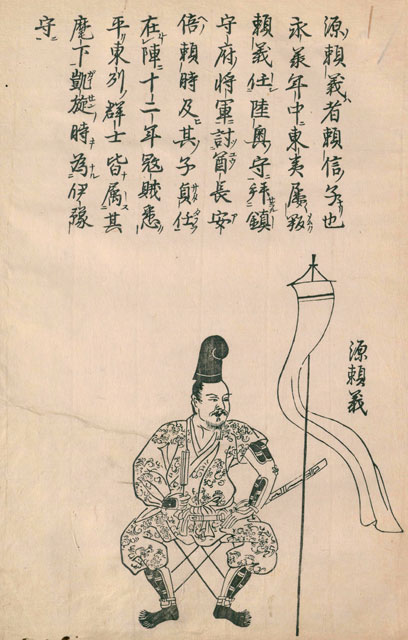 源頼義者頼信子也
永承年中東夷屢叛
頼義任陸奥守拜鎮
守府将軍討酋長安
倍頼時及其子貞任
在陣十二年冦賊悉
平東列群士皆属其
麾下凱旋時為伊豫
守
源頼義